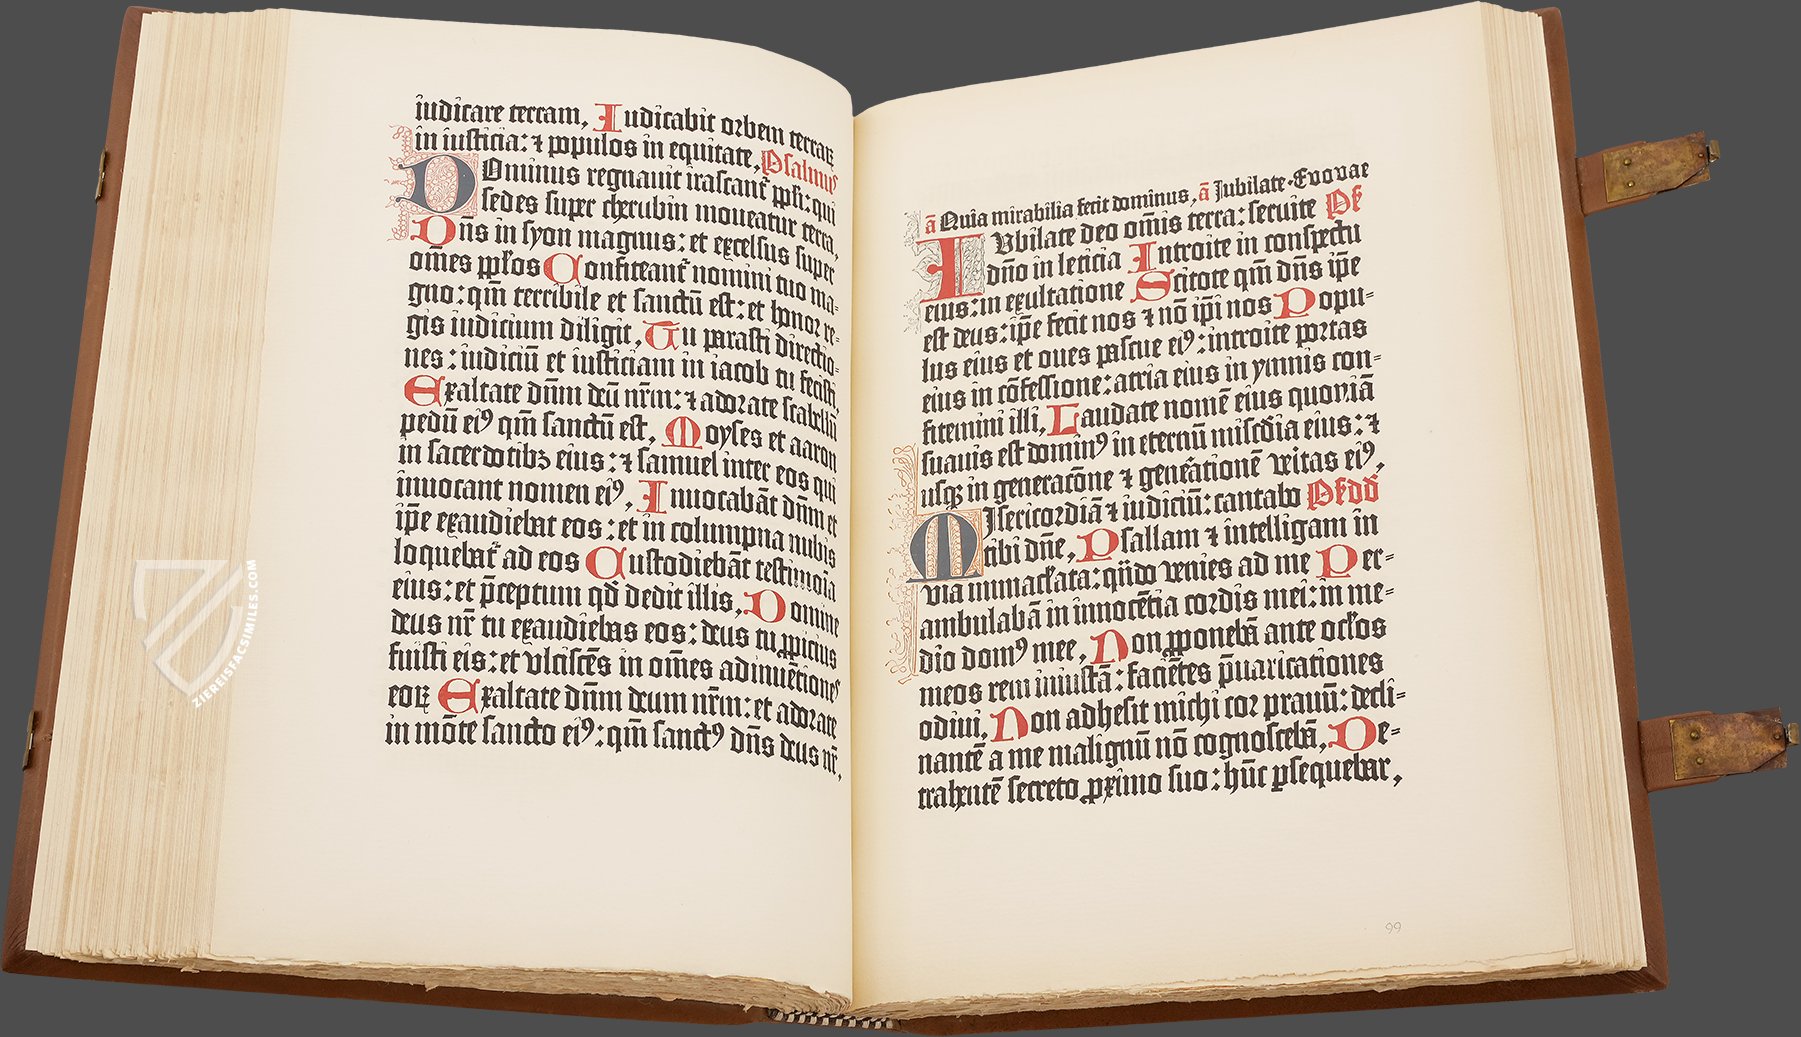 iudicare terram, Iudicabit orbem terraꝝ
in iusticia: ⁊ populos in equitate, Psalmus
DOminus regnauit irascant̉ ppłi: qui
sedes super cherubin moueatur terra,
Dn̄s in syon magnus: et excelsus super
om̄es ppłos Confiteant̉ nomini tuo ma⸗
gno: qm̄ terribile et sanctū est: et honor re⸗
gis iudicium diligit, Tu parasti directio⸗
nes: iudiciū et iusticiam in iacob tu fecisti,
Exaltate dn̄m deū nr̄m: ⁊ adorate scabellū
pedū eiꝰ qm̄ sanctū est, Moyses et aaron
in sacerdotibꝫ eius: ⁊ samuel inter eos qui
inuocant nomen eiꝰ, Inuocabāt dn̄m et
ip̄e exaudiebat eos: et in columpna nubis
loquebat̉ ad eos Custodiebāt testimōia
eius: et p̄ceptum qd̄ dedit illis, Domine
deus nr̄ tu exaudiebas eos: deus tu ꝓpicius
fuisti eis: et vlciscēs in om̄es adinuētiones
eoꝝ Exaltate dn̄m deum nr̄m: et adorate
in mōte sancto eiꝰ: qm̄ sanctꝰ dn̄s deus nr̄,
ā Quia mirabilia fecit dominus, ā Iubilate. Euouae
IUbilate deo om̄is terra: seruite Ps̄
dn̄o in leticia Introite in conspectu
eius: in exultatione Scitote qm̄ dn̄s ip̄e
est deus: ip̄e fecit nos ⁊ nō ip̄i nos Popu⸗
lus eius et oues pascue eiꝰ: introite portas
eius in cōfessione: atria eius in ymnis con⸗
fitemini illi, Laudate nomē eius quoniā
suauis est dominꝰ in eternū miscd̄ia eius: ⁊
usqꝫ in generacōne ⁊ gen̄eationē veritas eiꝰ,
MIsericordiā ⁊ iudiciū: cantabo Ps̄ dd̄
tibi dn̄e, Psallam ⁊ intelligam in
via immacl̄ata: qn̄do venies ad me Per⸗
ambulabā in innocētia cordis mei: in me⸗
dio domꝰ mee, Non ꝓponebā ante ocl̄os
meos rem iniustā: faciētes p̄uaricationes
odiui, Non adhesit michi cor prauū: decli⸗
nantē a me malignū nō cognoscebā, De⸗
trahentē secreto ꝓximo suo: hūc ꝑsequebar,
99
ZIEREISFACSIMILES.COM